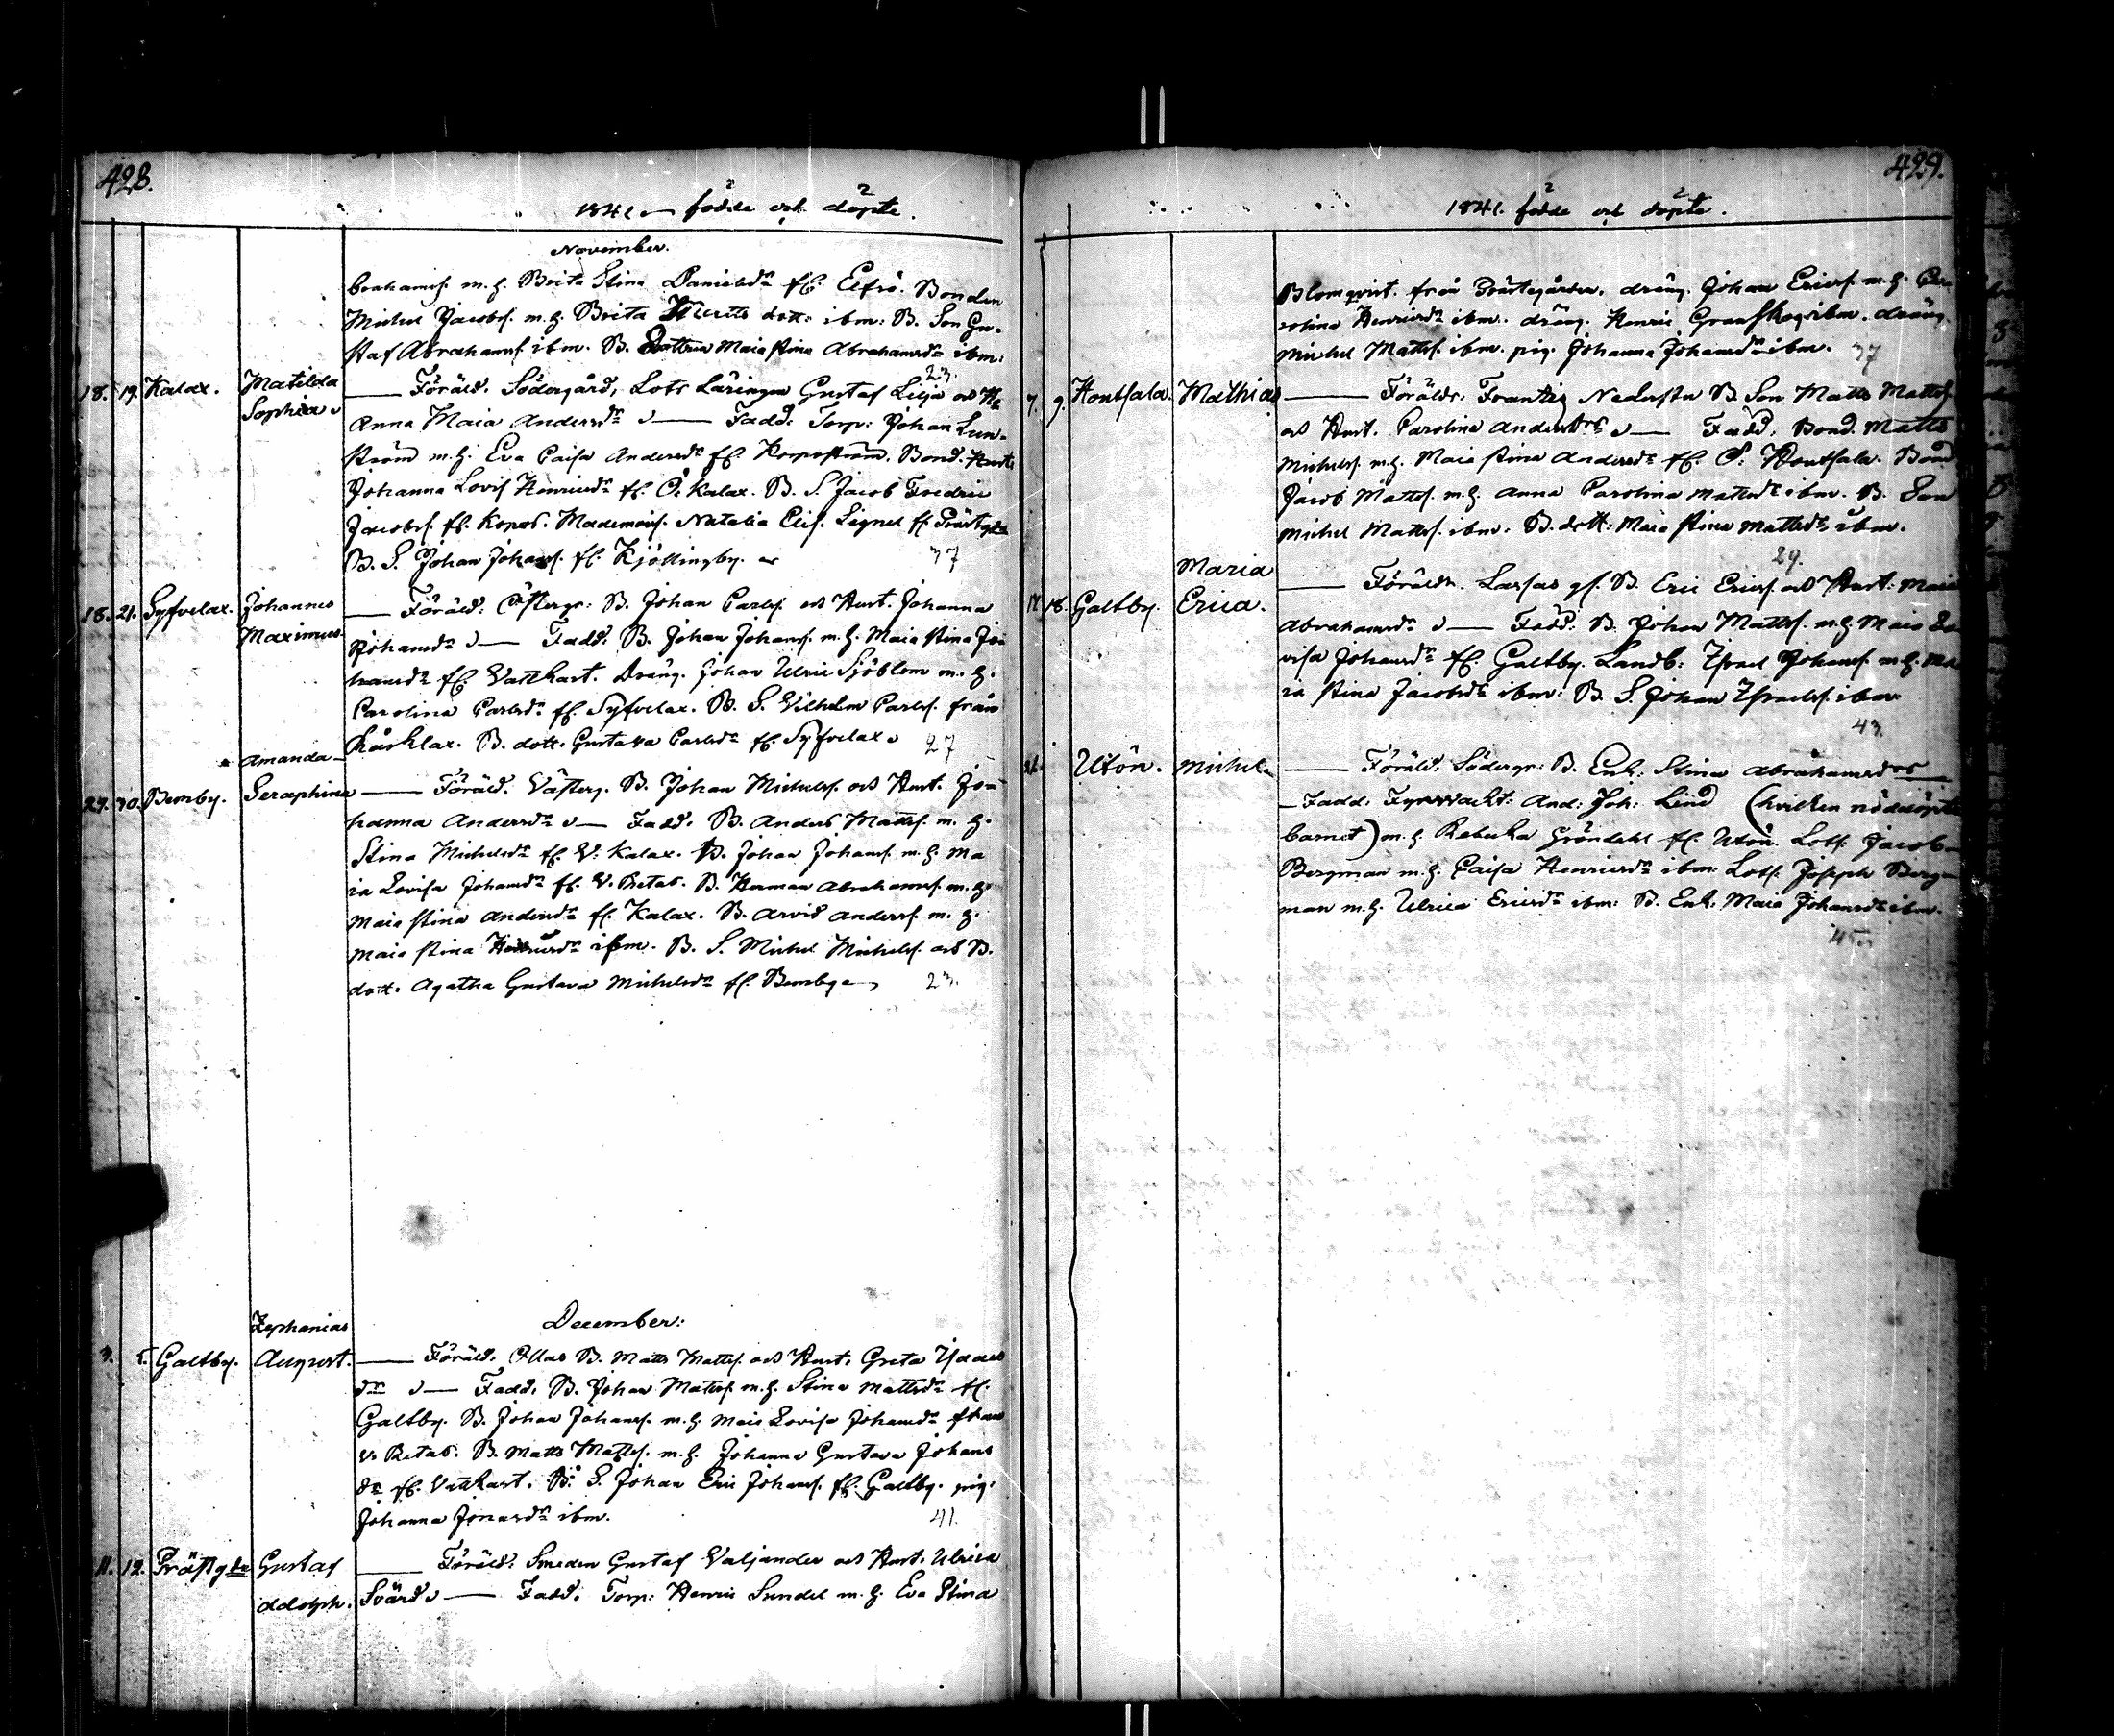 428.
1841 födde och döpte.
November.
brahamss. m. h. Brita Stina Danielsdr fr. Elfsö. Bonden
Michel Jacobss. m. h. Brita dott: ibm: B. Son Gu-
staf Abrahamss. ibm. B. Dottren Maia Stina Abrahamsdr ibm:
23.
18. 19. Kalax. Matilda Sophia
Föräld. Södergård, Lots Läringen Gustaf Lilja och H
Anna Maia Andersdr Fadd: Torp: Johan Lun-
ström m. h. Eva Caisa Andersdr fr. Korpoström. Bond. Hust:
Johanna Lovis Henricsdr fr. Ö. Kalax. B. S. Jacob Fredric
Jacobss. fr. Korpo. Mademois. Natalia Elis. Lignel fr. Prästgdn
B. S. Johan Johanss. fr. Kjöllingby.
37
18. 21. Syfvelax. Johannes Maximus
Föräld: Östergr: B. Johan Carlss. och Hust. Johanna
Johansdr Fadd: B. Johan Johanss. m. h. Maia Stina Jo-
hansdr fr. Vattkast. Dräng. Johan Ulric Sjöblom m. h.
Carolina Carlsdr fr. Syfvelax. B. S. Vilhelm Carlss. från
Kårklax. B. dott. Gustava Carlsdr fr. Syfvelax
27
29. 30. Bemby. Amanda Seraphina
Föräld. Västerg. B. Johan Michelss. och Hust. Jo-
hanna Andersdr Fadd. B. Anders Mattss. m. h.
Stina Michelsdr fr. V. Kalax. B. Johan Johanss. m. h. Ma
ia Lovisa Johansdr fr. V. Retas. B. Herman Abrahamss. m. h.
Maia Stina Andersdr fr. Kalax. B. Arvid Anderss. m. h.
Maia Stina Henricsdr ibm. B. S. Michel Michelss. och B.
dott. Agatha Gustava Michelsdr fr. Bemby
23.
December:
3. 5. Galtby. Zephanias August.
Föräld. Ollas B. Matts Mattss. och Hust. Greta Isaacs
dr Fadd. B. Johan Matss. m. h. Stina Mattsdr fr.
Galtby. B. Johan Johanss. m. h. Maia Lovisa Johansdr från
V. Retas. B. Matts Mattss. m. h. Johanna Gustava Johans
dr fr. Vattkast. B. S. Johan Eric Johanss. fr. Galtby. pig.
Johanna Jonasdr ibm.
41.
11. 12. Prästgdn Gustaf Adolph.
Föräld. Smeden Gustaf Valjander och Hust. Ulrica
Svärd Fadd. Torp: Henric Sundel m. h. Eva Stina
429.
1841. födde och döpte.
Blomqvist. från Prästegården. dräng. Johan Ericss. m. h. Ca-
rolina Henricsdr ibm. dräng. Henric Granskog ibm. dräng.
Michel Mattss. ibm. pig. Johanna Johansdr ibm.
37
7. 9. Houtsala. Mathias
Föräldr. Frantsig Nedersta B. Son Matts Mattss.
och Hust. Carolina Andersdr Fadd. Bond. Matts
Michelss. m. h. Maia Stina Andersdr fr. Ö. Houtsala. Bond
Jacob Mattss. m. h. Anna Carolina Mattsdr ibm. B. Son
Michel Mattss. ibm. B. dott: Maia Stina Mattsdr ibm.
29.
17. 18. Galtby. Maria Erica.
Föräldr. Larsas gf. B. Eric Ericss. och Hust: Maia
Abrahamsdr Fadd: B. Johan Mattss. m. h. Maia Lo
visa Johansdr fr. Galtby. Landb: Israel Johanss. m. h. Ma
ia Stina Jacobsdr ibm: B. S. Johan Israelss. ibm
43.
Utön. Michel
Föräld. Södergr: B. Enk: Stina Abrahamsdr
Fadd: Fyrvackt: And: Joh: Lind (hvilken nöddöpte
barnet) m. h. Rebecka Gröndahl fr. Utön. Lots. Jacob
Bergman m. h. Caisa Henricsdr ibm. Lots. Joseph Berg-
man m. h. Ulrica Ericsdr ibm: B. Enk. Maia Johansdr ibm.
45.